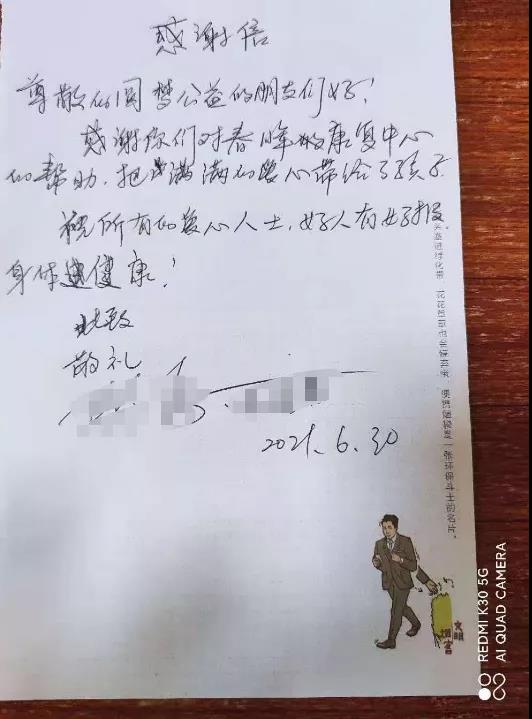 感谢信
尊敬的圆梦公益的朋友们好！
感谢你们对春晖敬康复中心
的帮助，把满满的爱心带给了孩子
祝所有的爱心人士，好人有好报
身体健康！
此致
敬礼
2021.6.30
一张环保斗士的名片。
文明
REDMI K30 5G
AI QUAD CAMERA